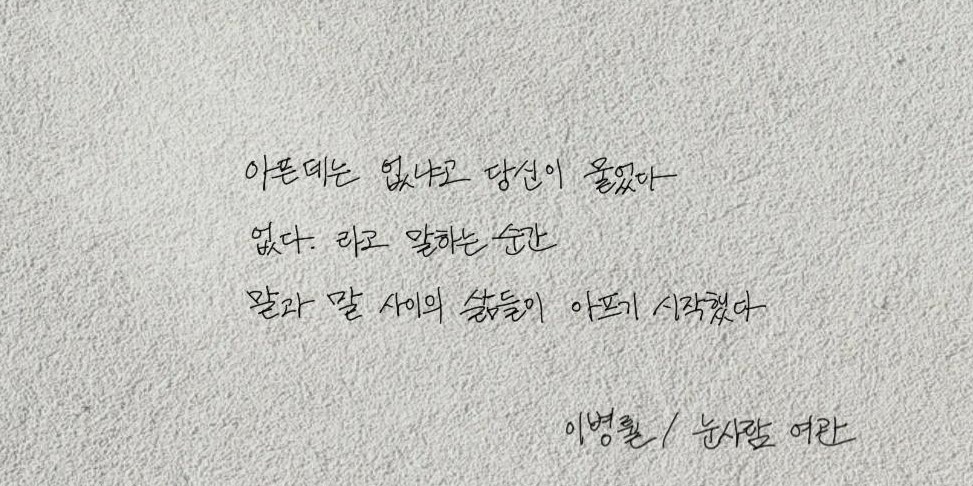 아픈데는 없냐고 당신이 물었다
없다. 라고 말하는 순간
말과 말 사이의 삶들이 아프기 시작했다
이병률 / 눈사람 여관